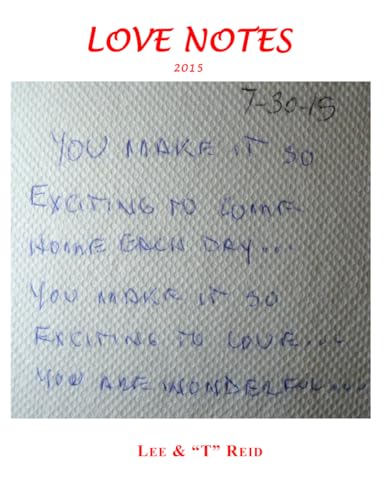 LOVE NOTES
2015
7-30-15
YOU MAKE IT SO
EXCITING TO COME
HOME EACH DAY...
YOU MAKE IT SO
EXCITING TO LOVE...
YOU ARE WONDERFUL...
LEE & “T” REID